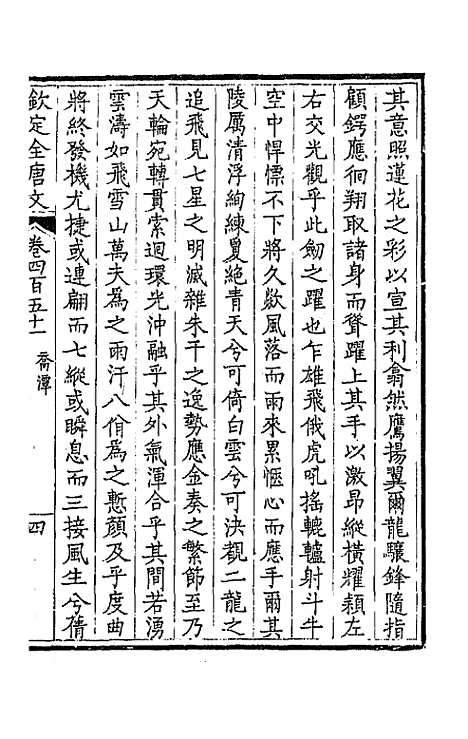 其意照蓮花之彩以宣其利翕然鷹揚翼爾龍驤鋒隨指
顧鍔應徊翔取諸身而聳躍上其手以激昂縱橫耀穎左
右交光觀乎此劒之躍也乍雄飛俄虎吼搖轆轤射斗牛
空中悍慓不下將久歘風落而雨來累愜心而應手爾其
陵厲清浮絢練敻絕青天兮可倚白雲兮可決觀二龍之
追飛見七星之明滅雜朱干之逸勢應金奏之繁節至乃
天輪宛轉貫索迴環光沖融乎其外氣渾合乎其間若湧
雲濤如飛雪山萬夫為之雨汗八佾為之慙顏及乎度曲
將終發機尤捷或連翩而七縱或瞬息而三接風生兮蒨
欽定全唐文 卷四百五十一 喬潭 四